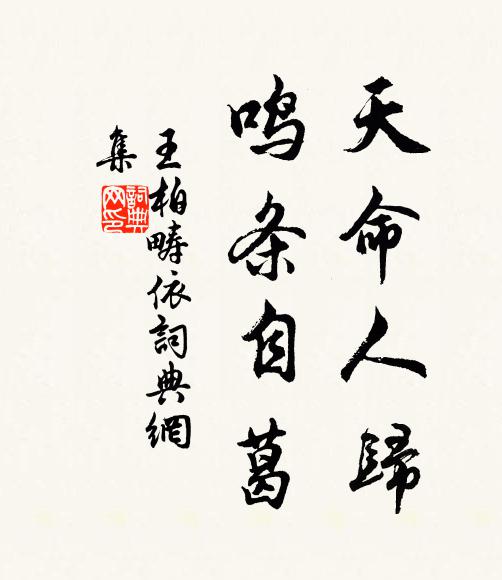 天命人歸
鸣条自葛
王柏疇依詞典網
集
詞典
网印